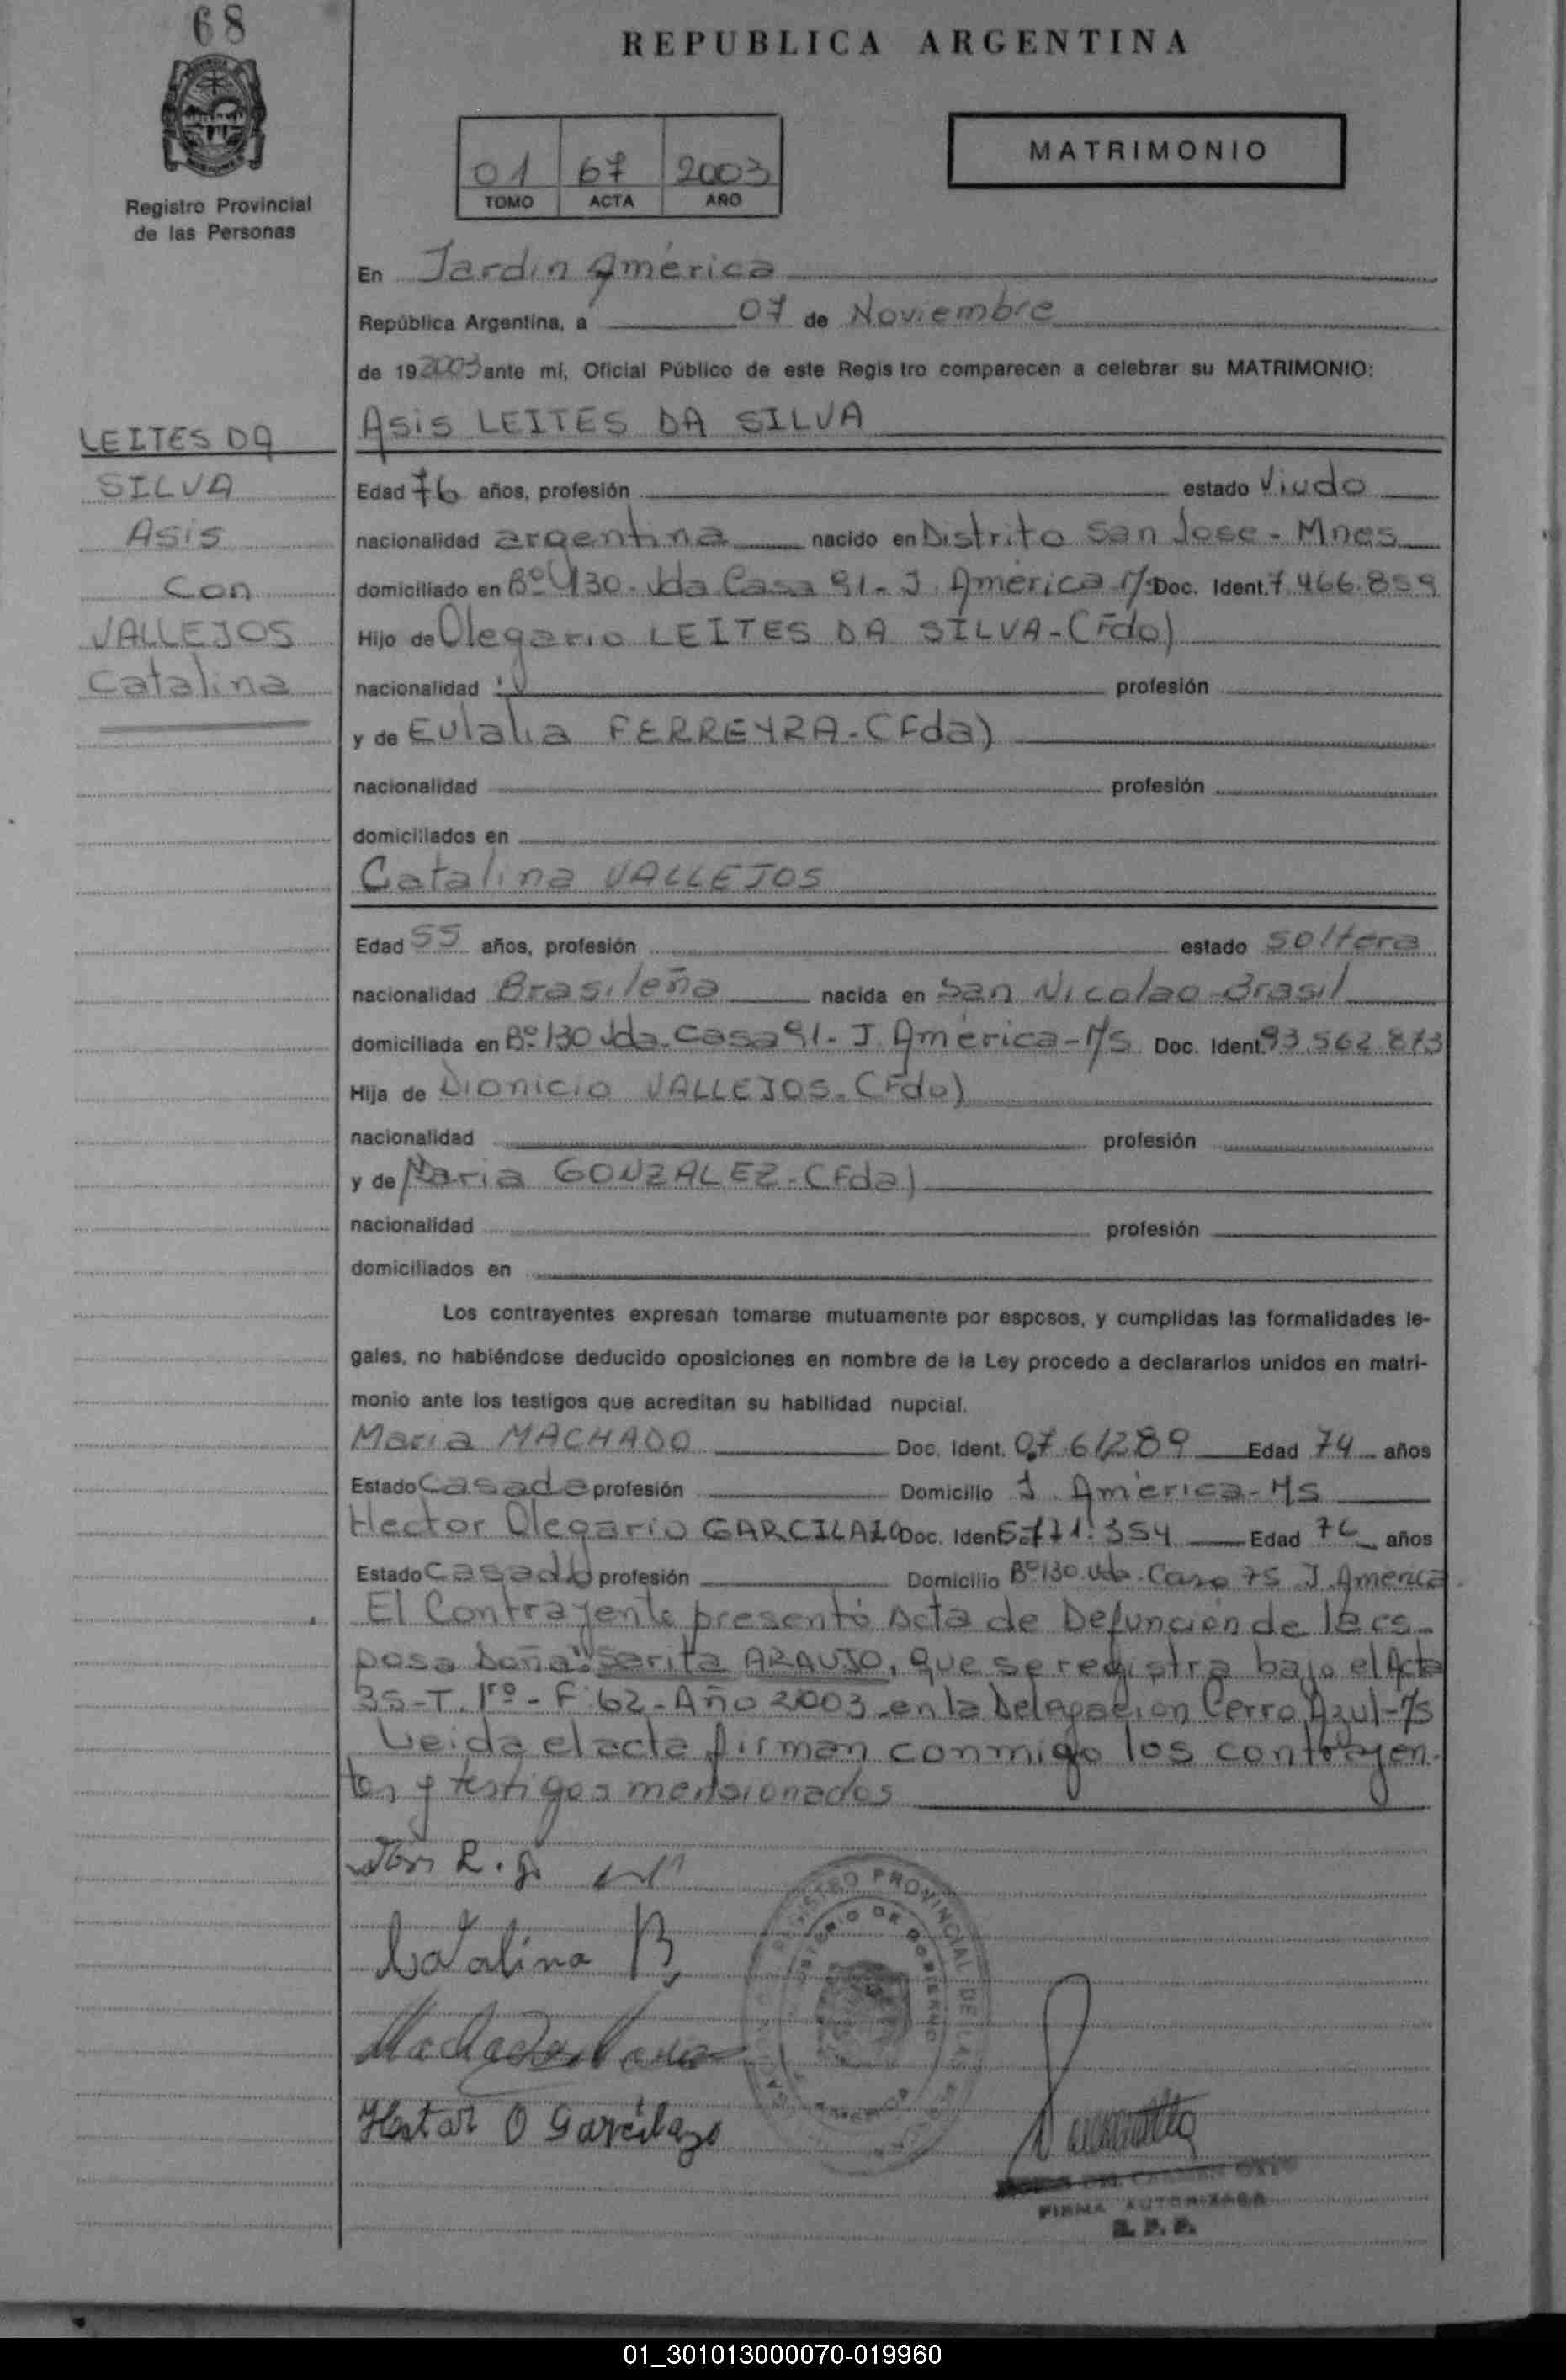 68
REPUBLICA ARGENTINA
MATRIMONIO
01 67 2003
TOMO ACTA AÑO
Registro Provincial
de las Personas
En Jardin América
República Argentina, a 07 de Noviembre
de 19 2003 ante mí, Oficial Público de este Registro comparecen a celebrar su MATRIMONIO:
LEITES DA
SILVA
Asis
Con
VALLEJOS
Catalina
Asis LEITES DA SILVA
Edad 76 años, profesión estado Viudo
nacionalidad argentina nacido en Distrito San Jose - Mnes
domiciliado en Bº 130 Vda Casa 91 - J. América Doc. Ident. 7.466.859
Hijo de Olegario LEITES DA SILVA - (Fdo)
nacionalidad profesión
y de Eulalia FERREYRA - (Fda)
nacionalidad profesión
domiciliados en
Catalina VALLEJOS
Edad 55 años, profesión estado soltera
nacionalidad Brasileña nacida en San Nicolao - Brasil
domiciliada en Bº 130 Vda. Casa 91 - J. América - M/s Doc. Ident. 93.562.873
Hija de Dionicio VALLEJOS. (Fdo)
nacionalidad profesión
y de Maria GONZALEZ - (Fda)
nacionalidad profesión
domiciliados en
Los contrayentes expresan tomarse mutuamente por esposos, y cumplidas las formalidades le-
gales, no habiéndose deducido oposiciones en nombre de la Ley procedo a declararlos unidos en matri-
monio ante los testigos que acreditan su habilidad nupcial.
Maria MACHADO Doc. Ident. Edad 74 años
Estado Casada profesión Domicilio J. América - Ms
Hector Olegario GARCILAZO Doc. Ident. Edad años
Estado Casado profesión Domicilio Bº 130 Vda. Casa 75 J. America
El Contrayente presentó Acta de Defunción de la es-
posa doña: Sarita ARAUJO, que se registra bajo el Acta
35 - T. 1ro - F: 62 - Año 2003 - en la Delegación Cerro Azul - M/s
Leida el acta firman conmigo los contrayen-
tes y testigos mensionados
Catalina
Hector O Garcilazo
REGISTRO PROVINCIAL DE LAS
MINISTERIO DE GOBIERNO
FIRMA AUTORIZADA
R. P. P.
01_301013000070-019960